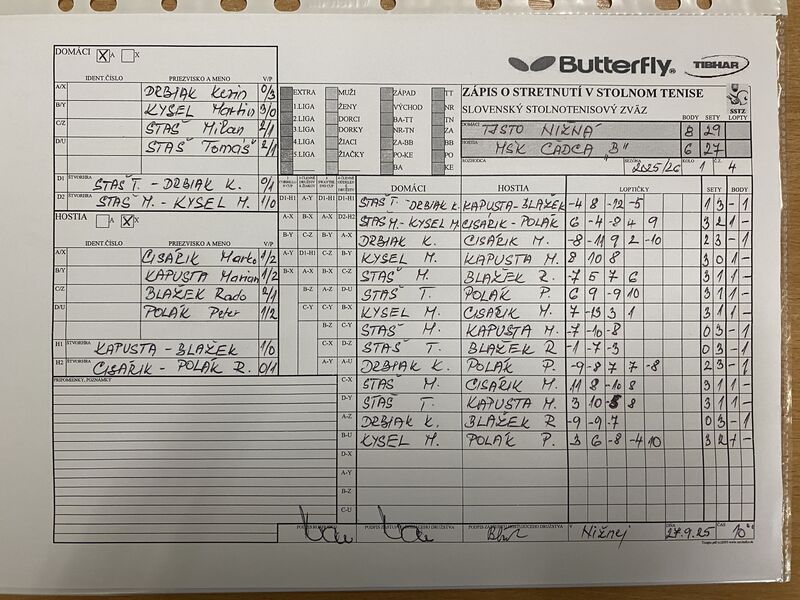 DOMÁCI X A X
IDENT.ČÍSLO PRIEZVISKO A MENO V/P
A/X DRBIAK Kevin 0/3
B/Y KYSEL Martin 3/0
C/Z STAŠ Milan 2/1
D/U STAŠ Tomáš 2/1
D1 ŠTVORHRA STAŠ T. - DRBIAK K. 0/1
D2 STAŠ M. - KYSEL M. 1/0
HOSTIA A X X
IDENT.ČÍSLO PRIEZVISKO A MENO V/P
A/X CISÁRIK Marko 1/2
B/Y KAPUSTA Marian 1/2
C/Z BLAŽEK Rado 2/1
D/U POLÁK Peter 1/2
H1 ŠTVORHRA KAPUSTA - BLAŽEK 1/0
H2 ŠTVORHRA CISÁRIK - POLÁK R. 0/1
PRIPOMIENKY, POZNÁMKY
Butterfly TIBHAR
EXTRA MUŽI ZÁPAD TT
1.LIGA ŽENY VÝCHOD NR
2.LIGA DORCI BA-TT TN
3.LIGA DORKY NR-TN ZA
4.LIGA ŽIACI ZA-BB BB
5.LIGA ŽIAČKY PO-KE PO
BA KE
ZÁPIS O STRETNUTÍ V STOLNOM TENISE
SLOVENSKÝ STOLNOTENISOVÝ ZVÄZ
SSTZ
BODY SETY LOPTY
DOMÁCI TJSTO NIŽNÁ 8 29
HOSTIA MSK ČADCA "B" 6 27
ROZHODCA SEZÓNA 2025/26 KOLO 1 Č. 4
DOMÁCI HOSTIA LOPTIČKY SETY BODY
D1-H1 STAŠ T. - DRBIAK K. KAPUSTA - BLAŽEK -4 8 -12 -5 1 3 - 1
D2-H2 STAŠ M. - KYSEL M. CISÁRIK - POLÁK 6 -4 -8 4 9 3 2 1 -
A-X DRBIAK K. CISÁRIK M. -8 -11 9 2 -10 2 3 - 1
B-Y KYSEL M. KAPUSTA M. 8 10 8 3 0 1 -
C-Z STAŠ M. BLAŽEK R. -7 5 7 6 3 1 1 -
D-U STAŠ T. POLÁK P. 6 9 -9 10 3 1 1 -
B-X KYSEL M. CISÁRIK M. 7 -13 3 1 3 1 1 -
C-Y STAŠ M. KAPUSTA M. -7 -10 -8 0 3 - 1
D-Z STAŠ T. BLAŽEK R -1 -7 -3 0 3 - 1
A-U DRBIAK K. POLÁK P. -9 -8 7 7 -8 2 3 - 1
C-X STAŠ M. CISÁRIK M. 11 8 -10 8 3 1 1 -
D-Y STAŠ T. KAPUSTA M. 3 10 8 3 1 1 -
A-Z DRBIAK K. BLAŽEK R -9 -9 -7 0 3 - 1
B-U KYSEL M. POLÁK P. 3 6 -8 -4 10 3 2 1 -
D-X
A-Y
B-Z
C-U
PODPIS ZÁSTUPCU DOMÁCEHO DRUŽSTVA PODPIS ZÁSTUPCU HOSŤUJÚCEHO DRUŽSTVA V Nižnej DŇA 27.9.25 ČAS 10